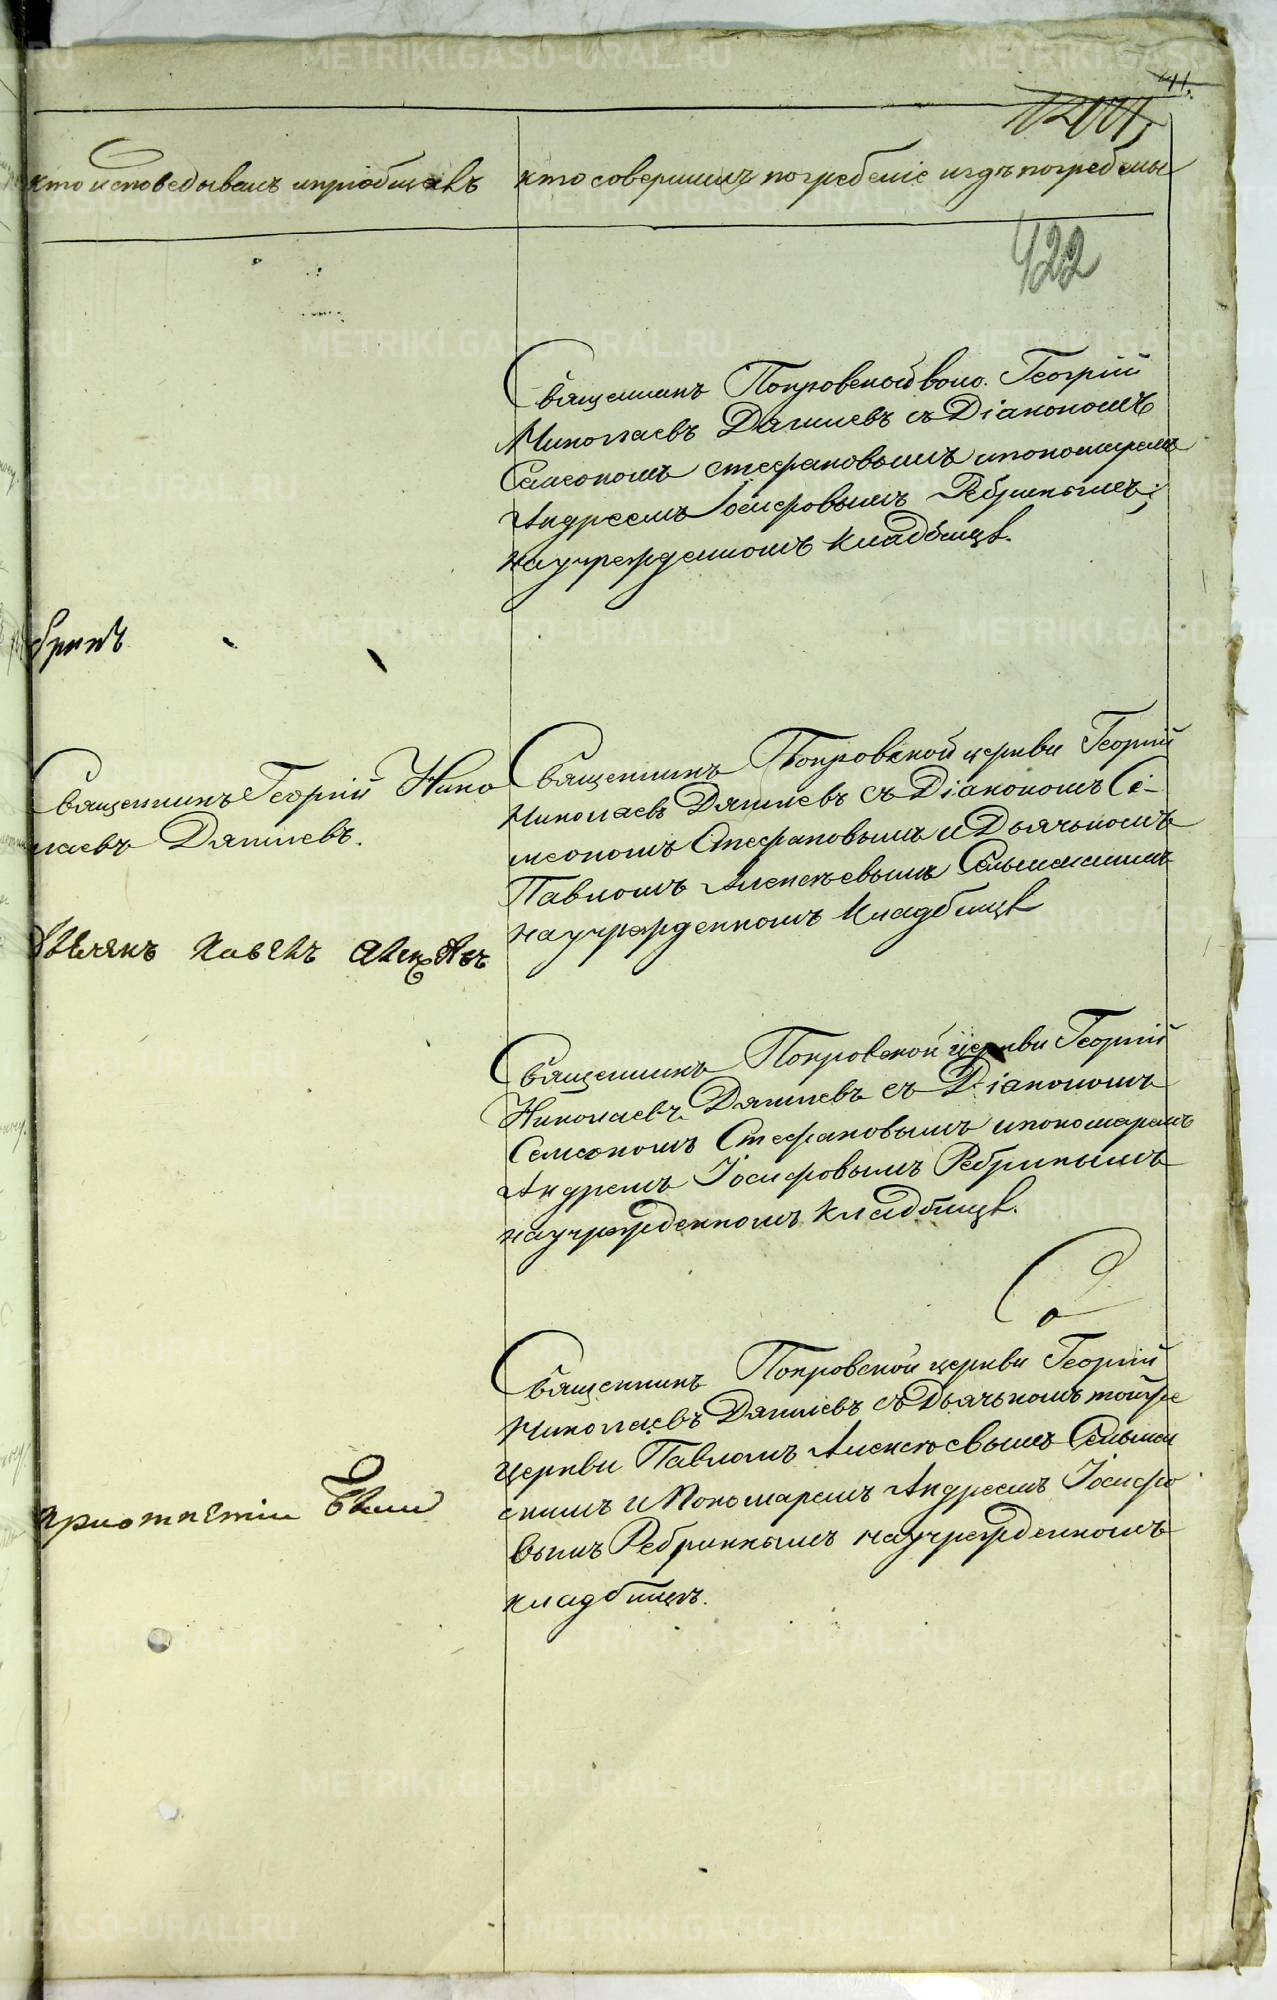 41.
кто исповедывалъ и пріобщалъ
кто совершилъ погребеніе и гдѣ погребены
422
Священникъ Покровской воло. Георгій
Николаевъ Дягилевъ съ Діакономъ
Симеономъ Стефановымъ и пономаремъ
Андреемъ Іосифовымъ Ребринымъ;
на учрежденномъ кладбищѣ.
Священникъ Георгій Нико
лаевъ Дягилевъ.
Священникъ Покровской церкви Георгій
Николаевъ Дягилевъ съ Діакономъ Си-
меономъ Стефановымъ и Дьячькомъ
Павломъ Алексѣевымъ
на учрежденномъ кладбищѣ
Павелъ
Священникъ Покровской церкви Георгій
Николаевъ Дягилевъ съ Діакономъ
Симеономъ Стефановымъ и пономаремъ
Андреемъ Іосифовымъ Ребринымъ
на учрежденномъ кладбищѣ.
Священникъ Покровской церкви Георгій
Николаевъ Дягилевъ съ Дьячькомъ тойже
церкви Павломъ Алексѣевымъ
скимъ и Пономаремъ Андреемъ Іосифо
вымъ Ребринымъ на учрежденномъ
кладбищѣ.
при отпетіи были
METRIKI.GASO-URAL.RU